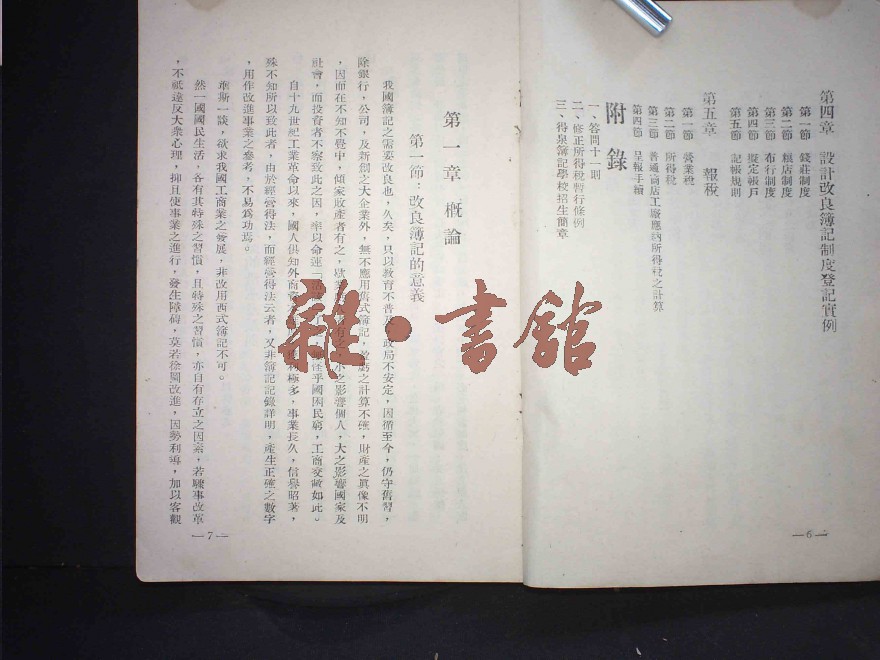 第四章 設計改良簿記制度登記實例
第一節 錢莊制度
第二節 糧店制度
第三節 布行制度
第四節 擬定帳戶
第五節 記帳規則
第五章 報稅
第一節 營業稅
第二節 所得稅
第三節 普通商店工廠應納所得稅之計算
第四節 呈報手續
附錄
一、答問十一則
二、修正所得稅暫行條例
三、得泉簿記學校招生簡章
—6—
第一章 概論
第一節:改良簿記的意義
我國簿記之需要改良也,久矣,只以教育不普及,政局不安定,因循至今,仍守舊習,
除銀行,公司,及新創之大企業外,無不應用舊式簿記,盈虧之計算不確,財產之眞像不明
,因而在不知不覺中,傾家敗產者有之,小之影響個人,大之影響國家及
社會,而投資者不察致此之因,率以命運「乎國困民窮,工商交敝如此。
自十九世紀工業革命以來,國人俱知外商極多,事業長久,信譽昭著,
殊不知所以致此者,由於經營得法,而經營得法云者,又非簿記記錄詳明,產生正確之數字
,用作改進事業之參考,不易爲功焉。
準斯一談,欲求我國工商業之發展,非改用西式簿記不可。
然一國國民生活,各有其特殊之習慣,且特殊之習慣,亦自有存立之因素,若驟事改革
,不祗違反大衆心理,抑且使事業之進行,發生障碍,莫若徐圖改進,因勢利導,加以客觀
—7—
雜·書館